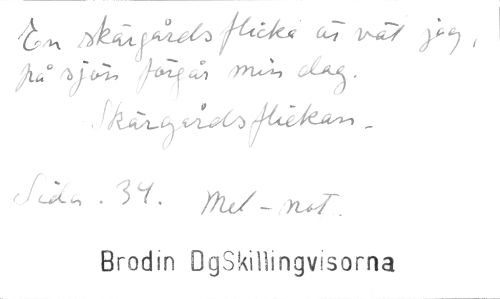 En skärgårdsflicka är vät jag,
på sjön förgår min dag.
Skärgårdsflickan.
Sida. 34. Mel - not.
Brodin DgSkillingvisorna